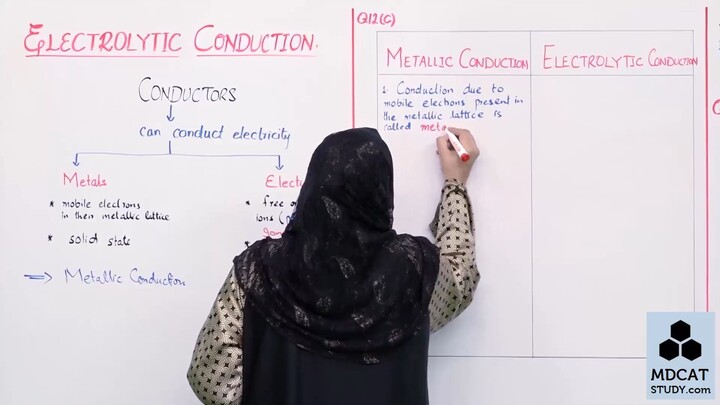 ELECTROLYTIC CONDUCTION.
CONDUCTORS
can conduct electricity
Metals
* mobile electrons
in their metallic lattice
* solid state
⇒ Metallic Conduction
* free
ions
Q12(C)
METALLIC CONDUCTION
ELECTROLYTIC CONDUCTION
1. Conduction due to
mobile electrons present in
the metallic lattice is
called meta
MDCAT
STUDY.com